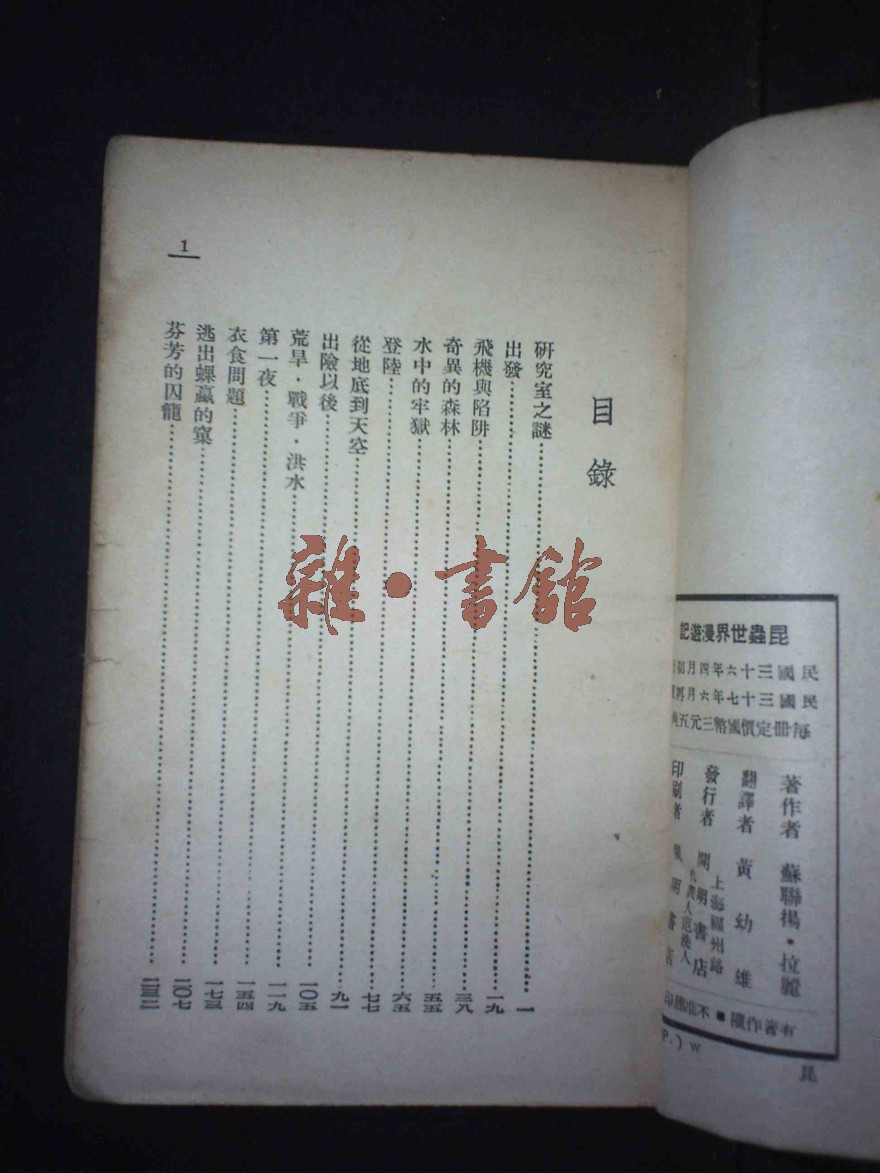 目錄
研究室之謎……一
出發……一九
飛機與陷阱……三八
奇異的森林……五五
水中的牢獄……六五
登陸……七七
從地底到天空……九一
出險以後……一〇五
荒旱・戰爭・洪水……一一九
第一夜……一五四
衣食問題……一七三
逃出蜾蠃的窠……二〇七
芬芳的囚籠……二三二
1
雜・書館
昆蟲世界漫遊記
民國三十六年四月初
民國三十七年六月再
每冊定價國幣三元五
著作者 蘇聯揚・拉麗
翻譯者 黃幼雄
上海福州路
發行者 開明書店
代表人范洗人
印刷者 明書店
有著作權■不准翻印
P.) W
昆